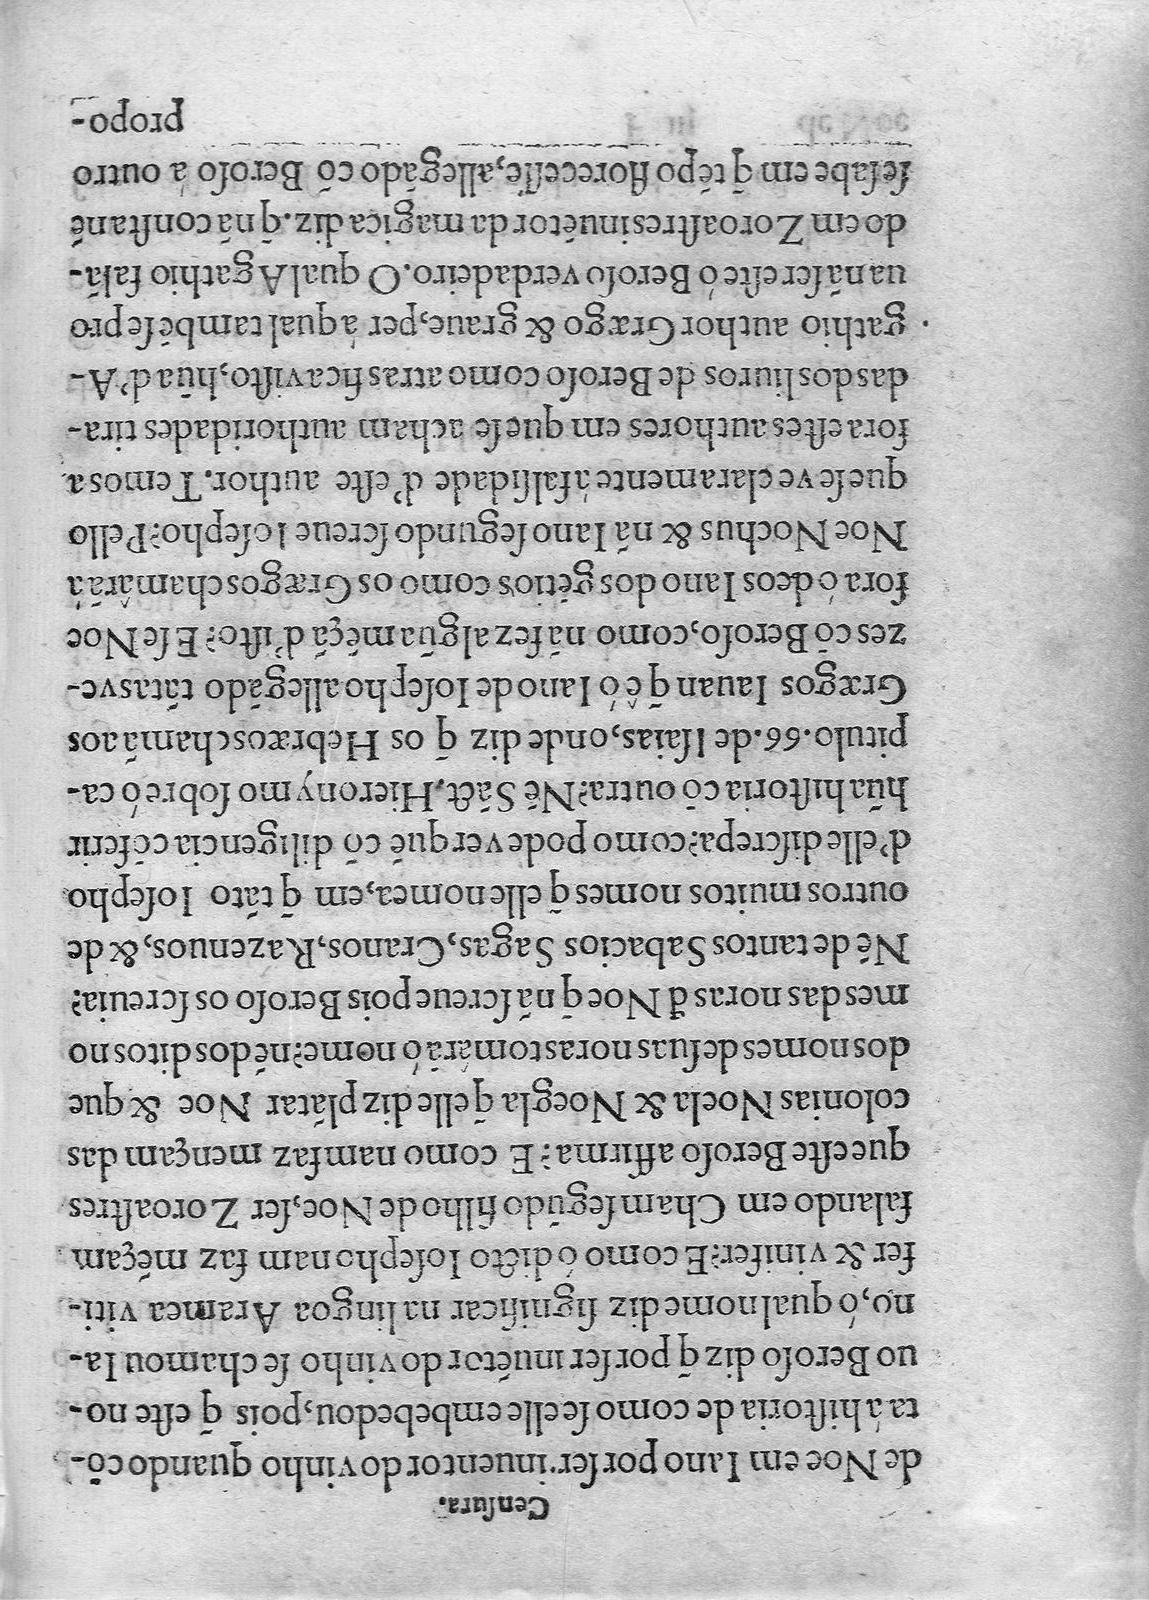 Cenſura.
de Noe em Iano por ſer inuentor do vinho quando cõ-
ta á hiſtoria de como ſe elle embebedou, pois q̃ eſte no-
uo Beroſo diz q̃ por ſer inuẽtor do vinho ſe chamou Ia-
no, ó qual nome diz ſignificar na lingoa Aramea viti-
fer & vinifer? E como ó dicto Ioſepho nam faz mẽçam
falando em Cham ſegũdo filho de Noe, ſer Zoroaſtres
que eſte Beroſo affirma? E como nam faz mençam das
colonias Noela & Noegla q̃ elle diz plãtar Noe & que
dos nomes de ſuas noras tomárão ó nome? nẽ dos ditos no
mes das noras d̃ Noe q̃ nã ſcreue pois Beroſo os ſcreuia?
Nẽ de tantos Sabacios Sagas, Cranos, Razenuos, & de
outros muitos nomes q̃ elle nomea, em q̃ tãto Ioſepho
d'elle diſcrepa? como pode ver quẽ cõ diligencia cõferir
hũa hiſtoria cõ outra? Nẽ Sãct. Hieronymo ſobre ó ca-
pitulo. 66. de Iſaias, onde diz q̃ os Hebræos chamã aos
Græegos Iauan q̃ é ó Iano de Ioſepho allegãdo tãtas ve-
zes cõ Beroſo, como nã fez algũa mẽçã d'iſto? E ſe Noe
fora ó deos Iano dos gẽtios como os Græegos chamárã á
Noe Nochus & nã Iano ſegundo ſcreue Ioſepho? Pello
que ſe ve claramente á falſidade d'eſte author. Temos a
fora eſtes authores em que ſe acham authoridades tira-
das dos liuros de Beroſo como atras fica viſto, hũa d'A-
gathio author Græego & graue, per á qual tambẽ ſe pro
ua nã ſer eſte ó Beroſo verdadeiro. O qual Agathio falã-
do em Zoroaſtres inuẽtor da magica diz. q̃ nã conſtãtẽ
ſe ſabe em q̃ tẽpo floreceſſe, allegãdo cõ Beroſo á outro
propo-